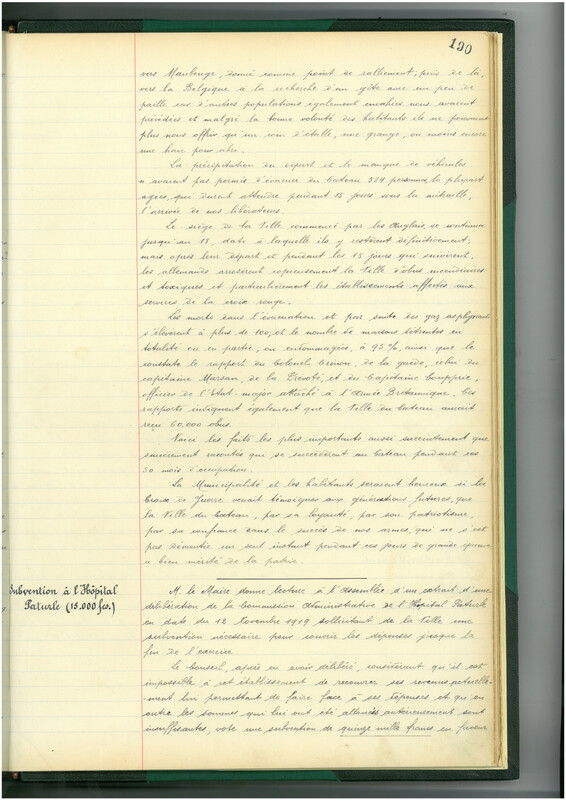 190
vers Maubenge, donné comme point de ralliement; puis de là,
vers la Belgique à la recherche d'un gîte avec un peu de
paille car d'autres populations également envahies nous avaient
précédées et malgré la bonne volonté des habitants ils ne pouvaient
plus nous offrir qu'un coin d'étable, une grange, ou moins encore
une haie pour abri.
La précipitation du départ et le manque de véhicules
n'avaient pas permis d'évacuer du Cateau 524 personnes, la plupart
agées, qui durent attendre pendant 15 jours sous la mitraille,
l'arrivée de nos libérateurs.
Le siège de la Ville commencé par les Anglais, se continua
jusqu'au 18, date à laquelle ils y restèrent définitivement;
mais après leur départ et pendant les 15 jours qui suivirent,
les allemands arrosèrent copieusement la Ville d'obus incendiaires
et toxiques et particulièrement les établissements affectés aux
services de la croix rouge.
Les morts dans l'évacuation et par suite des gaz asphyxiants
s'élevèrent à plus de 100, et le nombre de maisons détruites en
totalité ou en partie, ou endommagées, à 95%, ainsi que le
constate le rapport du Colonel de la guerre, celui du
capitaine de la Prévoté et du Capitaine
officier de l'Etat-major attaché à l'Armée Britannique. Ces
rapports indiquent également que la Ville du Cateau aurait
reçu 60.000 obus.
Voici les faits les plus importants aussi succintement que
sincèrement racontés qui se succédèrent au Cateau pendant ces
50 mois d'occupation.
La Municipalité et les habitants seraient heureux si la
Croix de Guerre venait témoigner aux générations futures, que
la Ville du Cateau, par sa loyauté, par son patriotisme,
par sa confiance dans le succès de nos armes, qui ne s'est
pas démentie un seul instant pendant ces jours de grande épreuve
a bien mérité de la patrie.
Subvention à l'Hôpital
Paturle (15.000 fcs.)
M. le Maire donne lecture à l'Assemblée d'un extrait d'une
délibération de la Commission Administrative de l'Hôpital Paturle
en date du 12 Novembre 1919 sollicitant de la Ville une
subvention nécessaire pour couvrir les dépenses jusque la
fin de l'exercice.
Le Conseil, après en avoir délibéré, considérant qu'il est
impossible à cet établissement de recouvrer ses revenus actuelle-
ment lui permettant de faire face à ses dépenses et qu'en
outre les sommes qui lui ont été allouées antérieurement sont
insuffisantes, vote une subvention de quinze mille francs en faveur